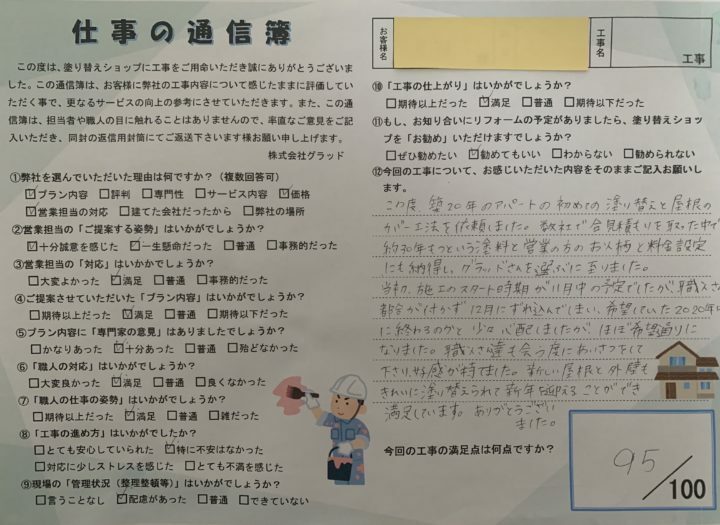 仕事の通信簿
この度は、塗り替えショップに工事をご用命いただき誠にありがとうございま
した。この通信簿は、お客様に弊社の工事内容について感じたままに評価してい
ただく事で、更なるサービスの向上の参考にさせていただきます。また、この通
信簿は、担当者や職人の目に触れることはありませんので、率直なご意見をご記
入いただき、同封の返信用封筒にてご返送下さいます様お願い申し上げます。
株式会社グラッド
①弊社を選んでいただいた理由は何ですか？（複数回答可）
☑プラン内容 □評判 □専門性 □サービス内容 ☑価格
☑営業担当の対応 □建てた会社だったから □弊社の場所
②営業担当の「ご提案する姿勢」はいかがでしたか？
☑十分誠意を感じた ☑一生懸命だった □普通 □事務的だった
③営業担当の「対応」はいかかでしょうか？
□大変よかった ☑満足 □普通 □事務的だった
④ご提案させていただいた「プラン内容」はいかがでしょうか？
□期待以上だった ☑満足 □普通 □期待以下だった
⑤プラン内容に「専門家の意見」はありましたでしょうか？
□かなりあった ☑十分あった □普通 □殆どなかった
⑥「職人の対応」はいかがでしょうか？
□大変良かった ☑満足 □普通 □良くなかった
⑦「職人の仕事の姿勢」はいかがでしょうか？
□期待以上だった ☑満足 □普通 □雑だった
⑧「工事の進め方」はいかがでしたか？
□とても安心していられた ☑特に不安はなかった
□対応に少しストレスを感じた □とても不満を感じた
⑨現場の「管理状況（整理整頓等）」はいかがでしょうか？
□言うことなし ☑配慮があった □普通 □できていない
お客様名
工事名
工事
⑩「工事の仕上がり」はいかがでしょうか？
□期待以上だった ☑満足 □普通 □期待以下だった
⑪もし、お知り合いにリフォームの予定がありましたら、塗り替えショッ
プを「お勧め」いただけますでしょうか？
□ぜひ勧めたい ☑勧めてもいい □わからない □勧められない
⑫今回の工事について、お感じいただいた内容をそのままご記入お願いし
ます。
この度 築20年のアパートの初めての塗り替えと屋根の
カバー工法を依頼しました。数社で合見積もりを取った中で
約30年もつという塗料と営業の方のお人柄と料金設定
にも納得し、グラッドさんを選ぶに至りました。
当初、施工のスタート時期が11月中の予定でしたが、職人さ
都合が付かず12月にずれ込んでしまい、希望していた2020年中
に終わるのかと少々心配しましたが、ほぼ希望通りに
なりました。職人さん達も会う度にあいさつをして
下さり、好感が持てました。新しい屋根と外壁も
きれいに塗り替えられて新年を迎えることができ
満足しています。ありがとうござい
ました。
今回の工事の満足点は何点ですか？
95/100